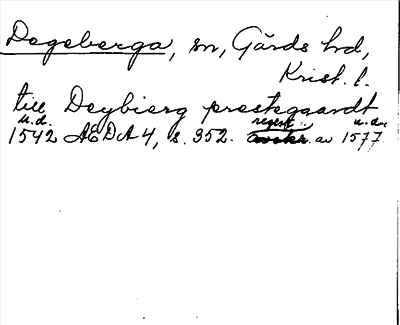 Degeberga, sn, Gärds hd,
Krist. l.
till Deybierg prestegaardt
u.d. regest u.d.
1542 ÆDA 4, s. 352. av 1577